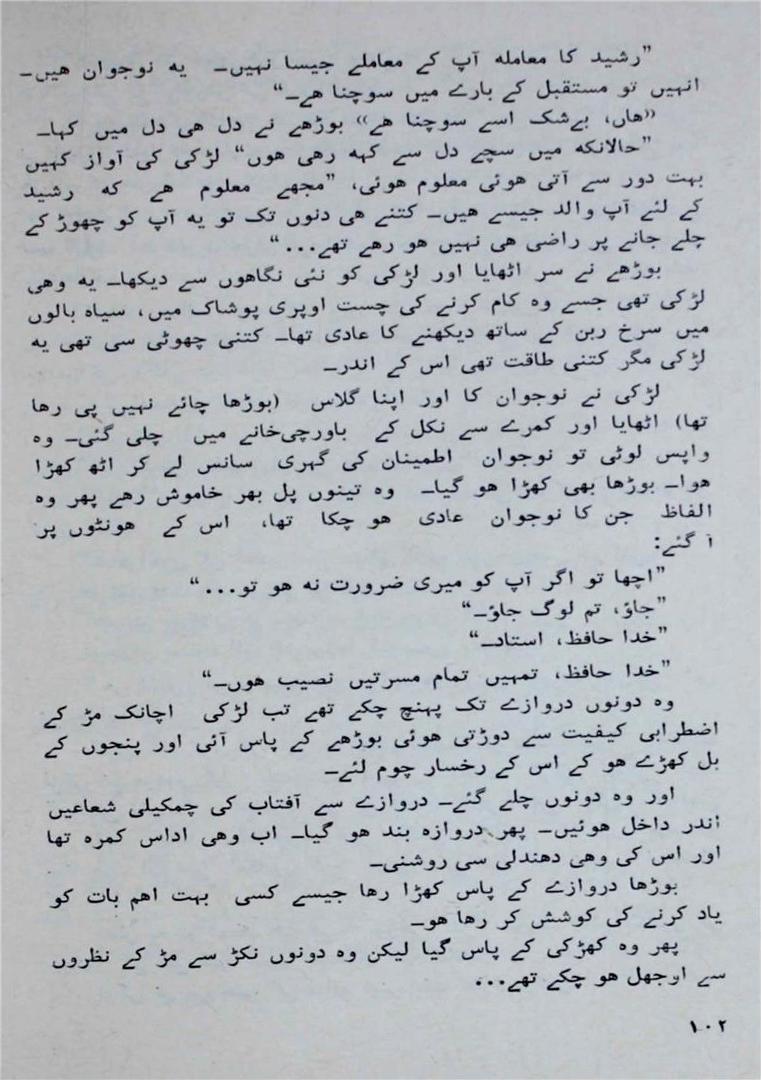 ”رشید کا معاملہ آپ کے معاملے جیسا نہیں۔ یہ نوجوان ھیں۔
انہیں تو مستقبل کے بارے میں سوچنا ھے۔“
«ھاں، بےشک اسے سوچنا ھے» بوڑھے نے دل ھی دل میں کہا۔
”حالانکہ میں سچے دل سے کہہ رھی ھوں“ لڑکی کی آواز کہیں
بہت دور سے آتی ھوئی معلوم ھوئی، ”مجھے معلوم ھے کہ رشید
کے لئے آپ والد جیسے ھیں۔ کتنے ھی دنوں تک تو یہ آپ کو چھوڑ کے
چلے جانے پر راضی ھی نہیں ھو رھے تھے...“
بوڑھے نے سر اٹھایا اور لڑکی کو نئی نگاھوں سے دیکھا۔ یہ وھی
لڑکی تھی جسے وہ کام کرنے کی چست اوپری پوشاک میں، سیاہ بالوں
میں سرخ ربن کے ساتھ دیکھنے کا عادی تھا۔ کتنی چھوٹی سی تھی یہ
لڑکی مگر کتنی طاقت تھی اس کے اندر۔
لڑکی نے نوجوان کا اور اپنا گلاس (بوڑھا چائے نہیں پی رھا
تھا) اٹھایا اور کمرے سے نکل کے باورچی‌خانے میں چلی گئی۔ وہ
واپس لوٹی تو نوجوان اطمینان کی گہری سانس لے کر اٹھ کھڑا
ھوا۔ بوڑھا بھی کھڑا ھو گیا۔ وہ تینوں پل بھر خاموش رھے پھر وہ
الفاظ جن کا نوجوان عادی ھو چکا تھا، اس کے ھونٹوں پر
آ گئے:
”اچھا تو اگر آپ کو میری ضرورت نہ ھو تو...“
”جاؤ، تم لوگ جاؤ۔“
”خدا حافظ، استاد۔“
”خدا حافظ، تمہیں تمام مسرتیں نصیب ھوں۔“
وہ دونوں دروازے تک پہنچ چکے تھے تب لڑکی اچانک مڑ کے
اضطرابی کیفیت سے دوڑتی ھوئی بوڑھے کے پاس آئی اور پنجوں کے
بل کھڑے ھو کے اس کے رخسار چوم لئے۔
اور وہ دونوں چلے گئے۔ دروازے سے آفتاب کی چمکیلی شعاعیں
اندر داخل ھوئیں۔ پھر دروازہ بند ھو گیا۔ اب وھی اداس کمرہ تھا
اور اس کی وھی دھندلی سی روشنی۔
بوڑھا دروازے کے پاس کھڑا رھا جیسے کسی بہت اھم بات کو
یاد کرنے کی کوشش کر رھا ھو۔
پھر وہ کھڑکی کے پاس گیا لیکن وہ دونوں نکڑ سے مڑ کے نظروں
سے اوجھل ھو چکے تھے...
۱۰۲